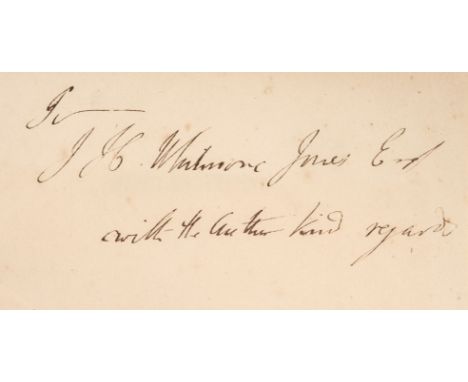 To
J H. Whitmore Jones Esqr
with the Author kind regards